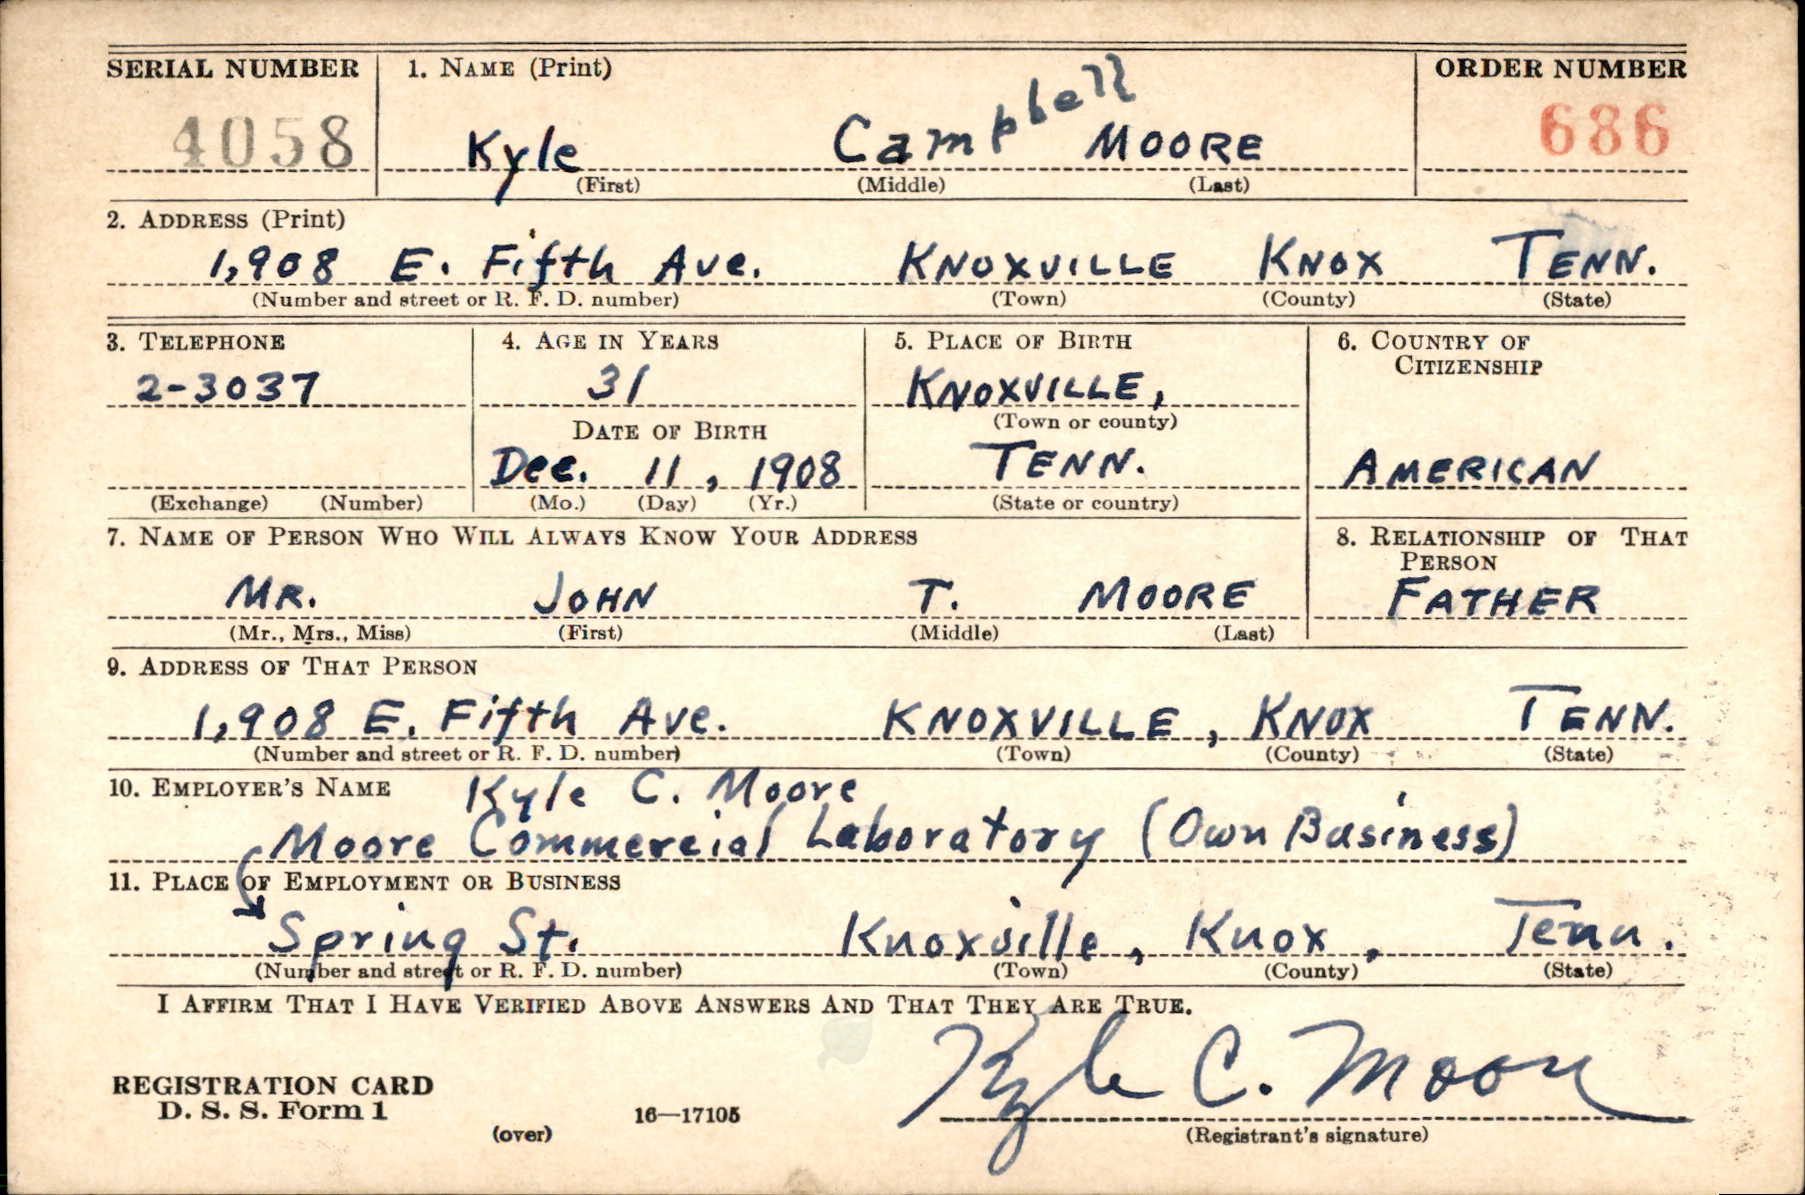 SERIAL NUMBER 1. NAME (Print) ORDER NUMBER
4058 Kyle Campbell MOORE 686
(First) (Middle) (Last)
2. ADDRESS (Print)
1,908 E. Fifth Ave. KNOXVILLE KNOX TENN.
(Number and street or R. F. D. number) (Town) (County) (State)
3. TELEPHONE 4. AGE IN YEARS 5. PLACE OF BIRTH 6. COUNTRY OF
CITIZENSHIP
2-3037 31 KNOXVILLE,
(Town or county)
DATE OF BIRTH
Dec. 11, 1908 TENN. AMERICAN
(Exchange) (Number) (Mo.) (Day) (Yr.) (State or country)
7. NAME OF PERSON WHO WILL ALWAYS KNOW YOUR ADDRESS 8. RELATIONSHIP OF THAT
PERSON
MR. JOHN T. MOORE FATHER
(Mr., Mrs., Miss) (First) (Middle) (Last)
9. ADDRESS OF THAT PERSON
1,908 E. Fifth Ave. KNOXVILLE, KNOX TENN.
(Number and street or R. F. D. number) (Town) (County) (State)
10. EMPLOYER'S NAME Kyle C. Moore
Moore Commercial Laboratory (Own Business)
11. PLACE OF EMPLOYMENT OR BUSINESS
Spring St. Knoxville, Knox, Tenn.
(Number and street or R. F. D. number) (Town) (County) (State)
I AFFIRM THAT I HAVE VERIFIED ABOVE ANSWERS AND THAT THEY ARE TRUE.
Kyle C. Moore
REGISTRATION CARD
D. S. S. Form 1 16—17105
(over) (Registrant's signature)